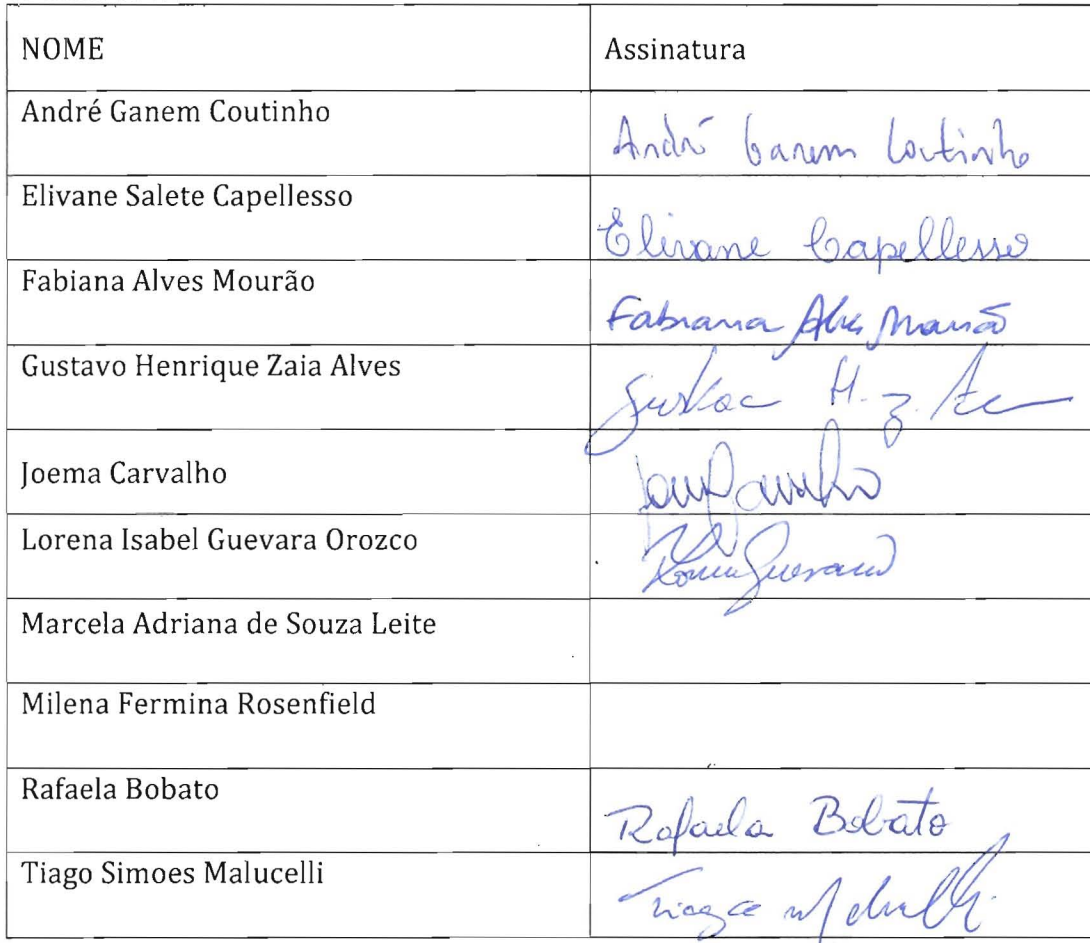 NOME Assinatura
André Ganem Coutinho
André Ganem Coutinho
Elivane Salete Capellesso
Elivane Capellesso
Fabiana Alves Mourão
Fabiana Alves Mourão
Gustavo Henrique Zaia Alves
Gustavo H. Z.
Joema Carvalho
Carvalho
Lorena Isabel Guevara Orozco
Lorena Guevara
Marcela Adriana de Souza Leite
Milena Fermina Rosenfield
Rafaela Bobato
Rafaela Bobato
Tiago Simoes Malucelli
Tiago